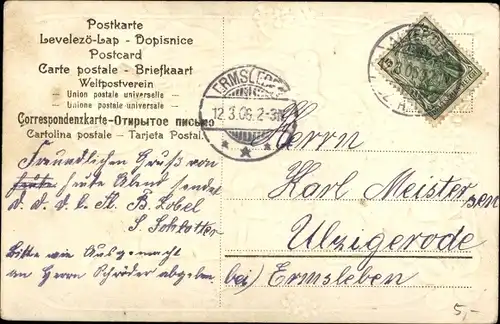 Postkarte
Levelezö-Lap - Dopisnice
Postcard
Carte postale - Briefkaart
Weltpostverein
Union postale universelle
Unione postale universale
Correspondenzkarte-Открытое письмо
Cartolina postale - Tarjeta Postal.
ERMSLEBEN
12.3.06.2-3N
Freundlichen Gruß von
heute Abend sendet
B. Lobel
Bitte wie Ausgemacht
an Herrn Schröder abgeben.
Herrn
Karl Meister
Ulzigerode
bei) Ermsleben
5,-